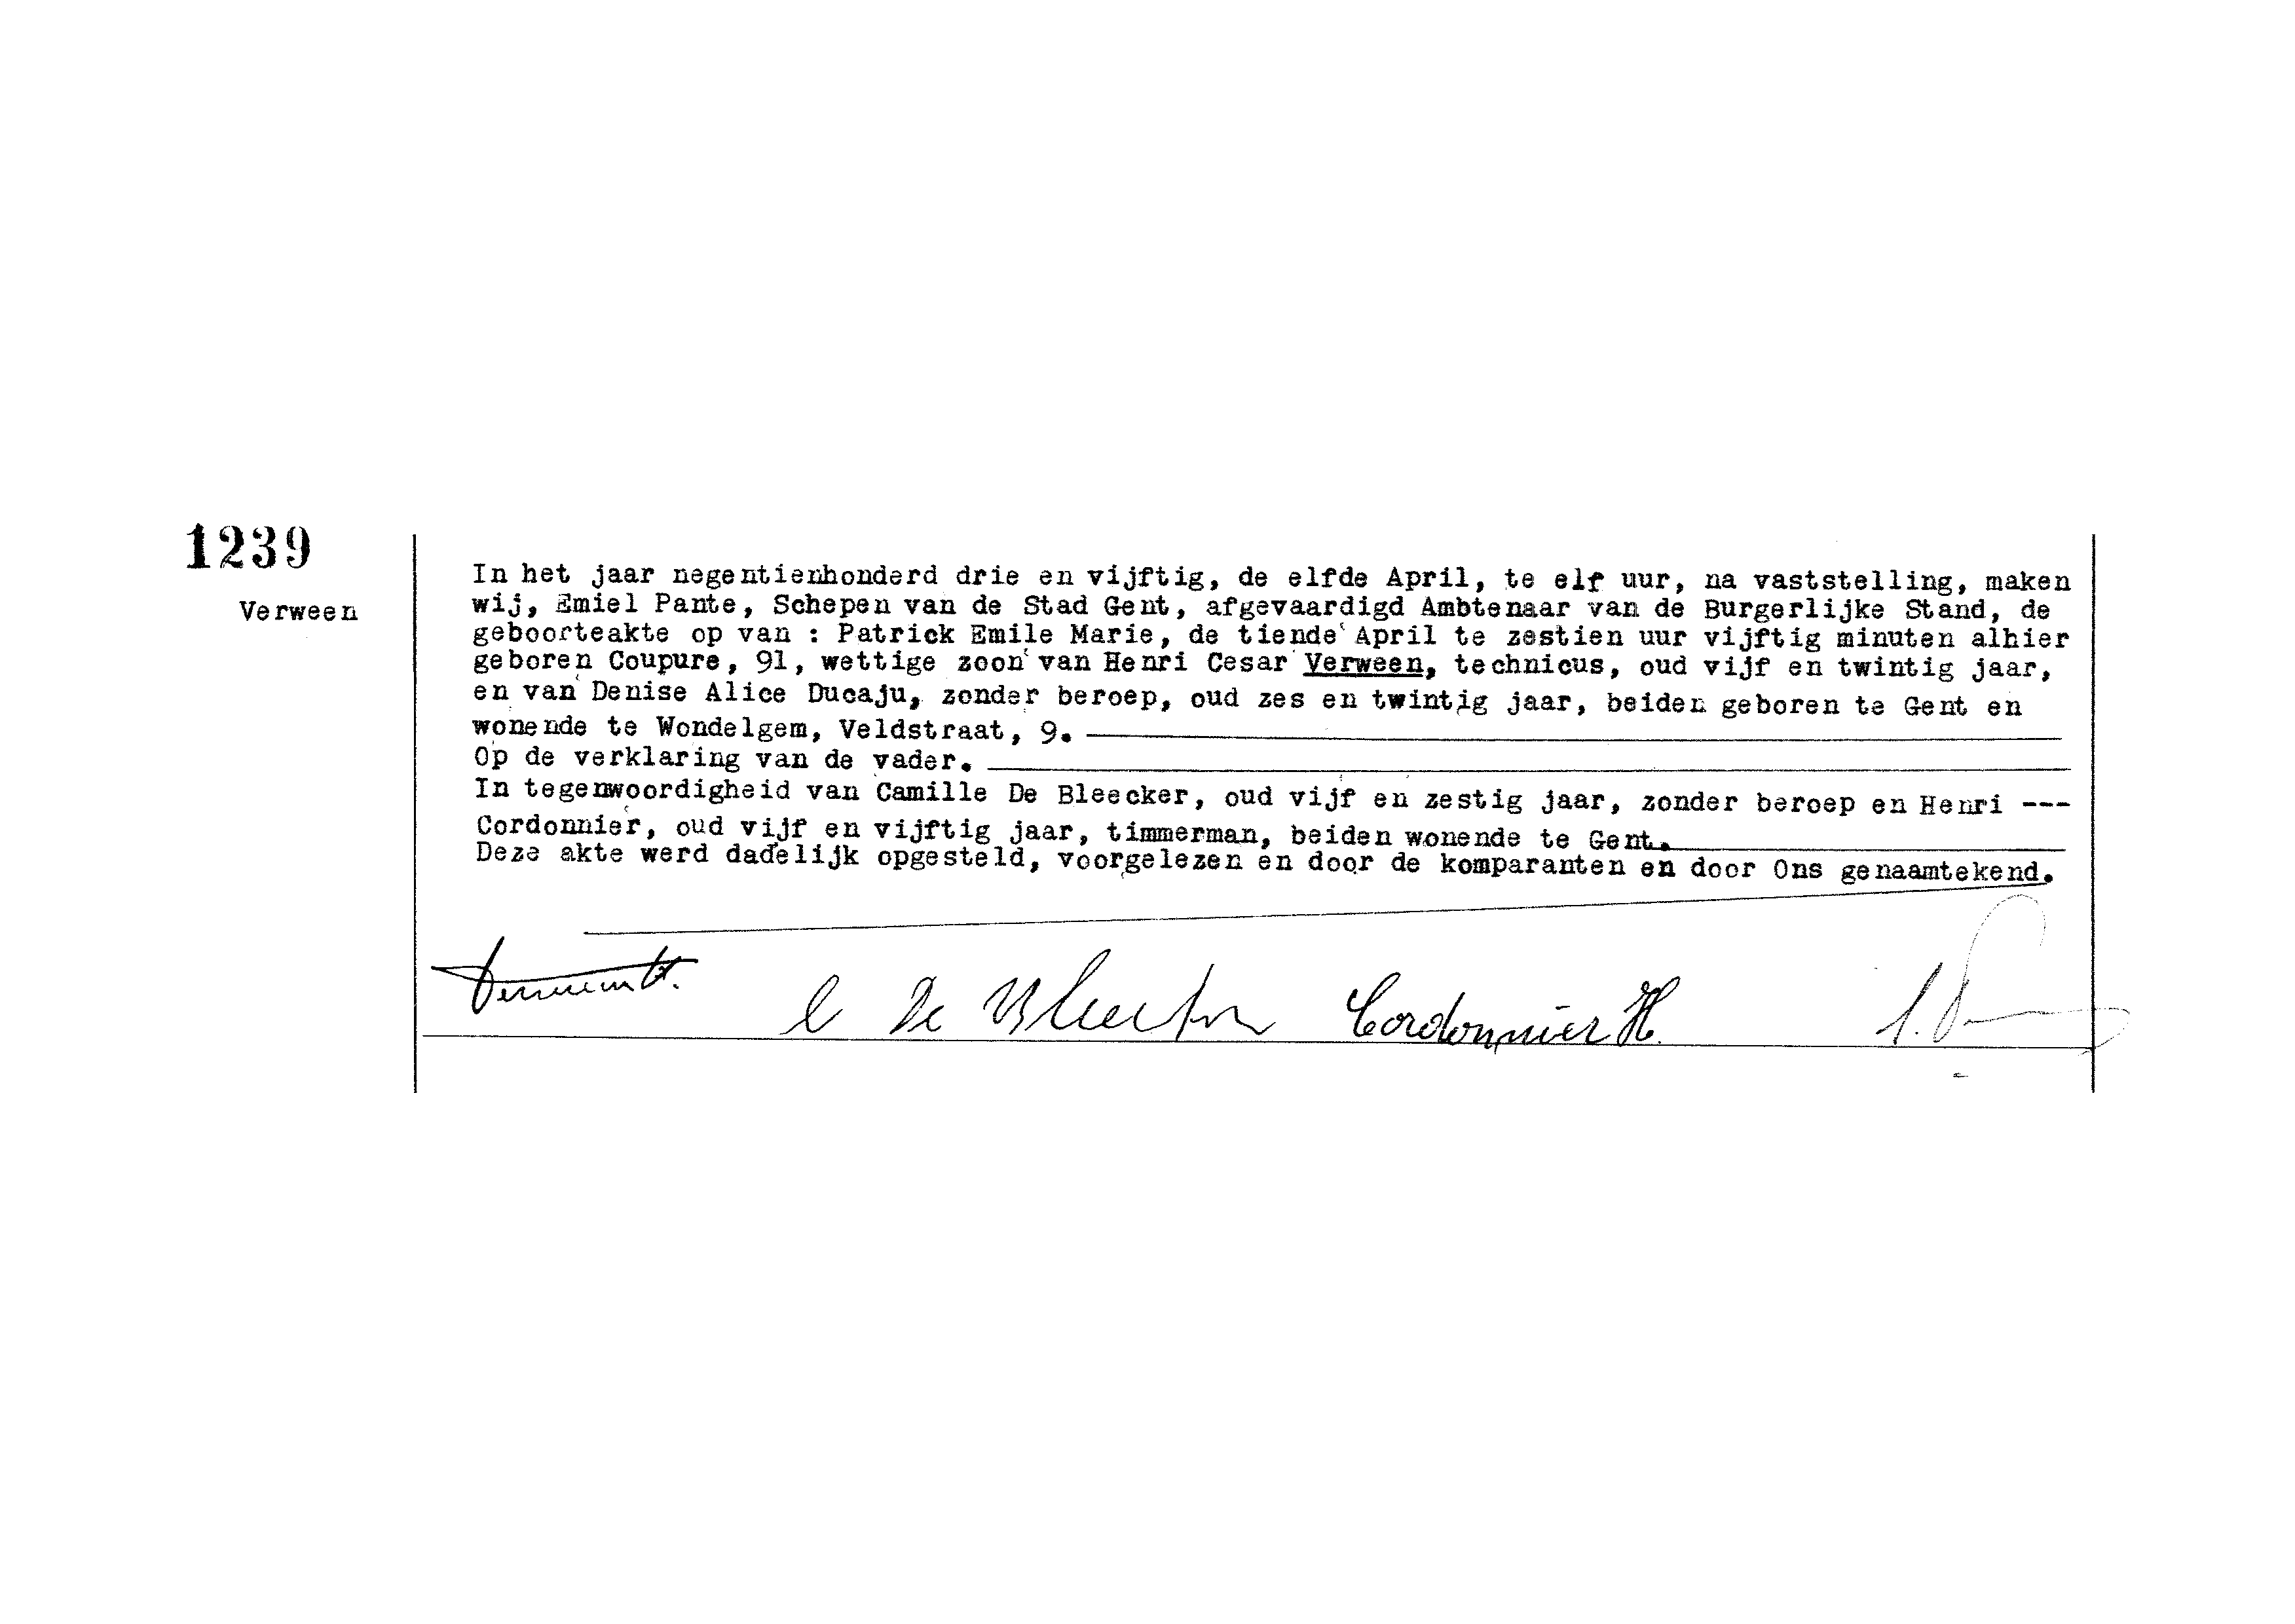 1239
Verween
In het jaar negentienhonderd drie en vijftig, de elfde April, te elf uur, na vaststelling, maken
wij, Emiel Pante, Schepen van de Stad Gent, afgevaardigd Ambtenaar van de Burgerlijke Stand, de
geboorteakte op van : Patrick Emile Marie, de tiende April te zestien uur vijftig minuten alhier
geboren Coupure, 91, wettige zoon van Henri Cesar Verween, technicus, oud vijf en twintig jaar,
en van Denise Alice Ducaju, zonder beroep, oud zes en twintig jaar, beiden geboren te Gent en
wonende te Wondelgem, Veldstraat, 9.
Op de verklaring van de vader.
In tegenwoordigheid van Camille De Bleecker, oud vijf en zestig jaar, zonder beroep en Henri ---
Cordonnier, oud vijf en vijftig jaar, timmerman, beiden wonende te Gent.
Deze akte werd dadelijk opgesteld, voorgelezen en door de komparanten en door Ons genaamtekend.
C De Bleecker Cordonnier H.